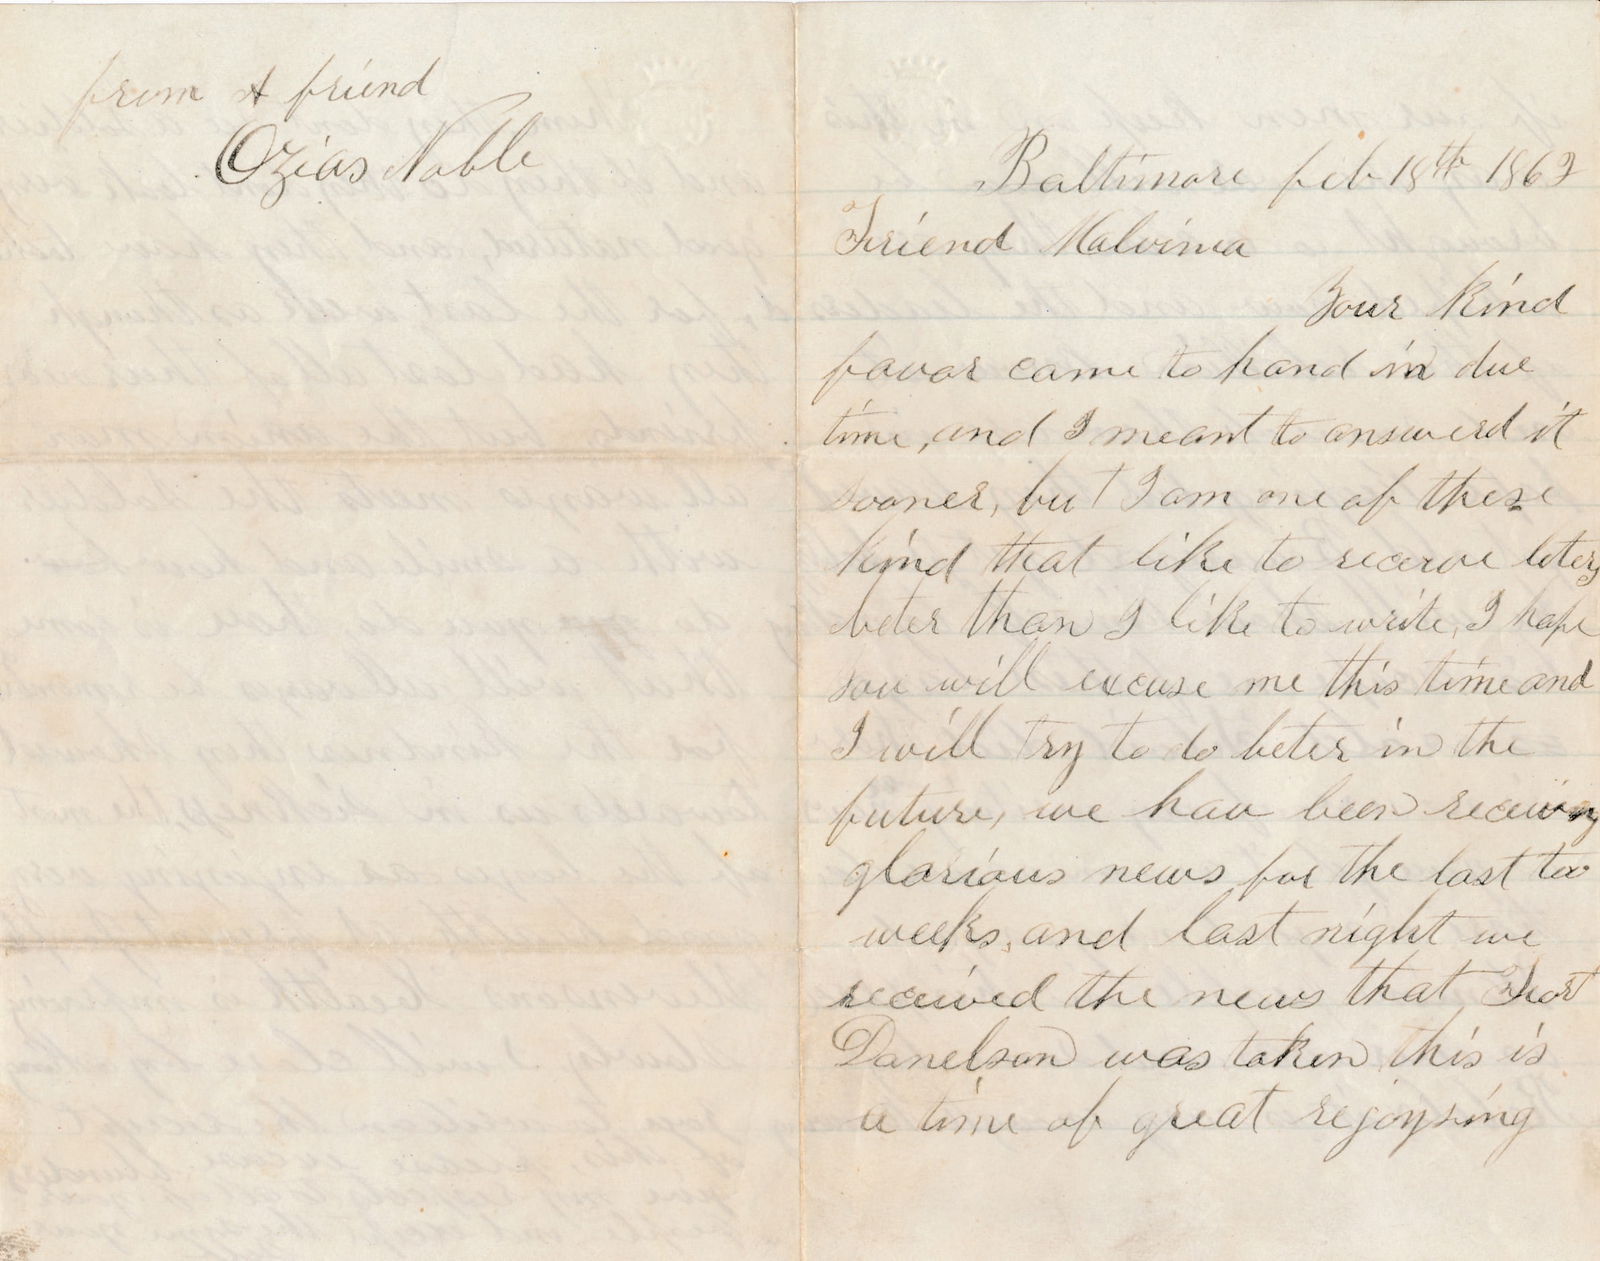 from A friend
Ozias Noble
Baltimore feb 18th 1862
Friend Malvinia
Your kind
favor came to hand in due
time, and I meant to answerd it
sooner, but I am one of these
kind that like to receive leters
beter than I like to write, I hope
you will excuse me this time and
I will try to do beter in the
future, we hav been receiving
glorious news for the last too
weeks, and last night we
received the news that Fort
Danelson was taken this is
a time of great rejoysing